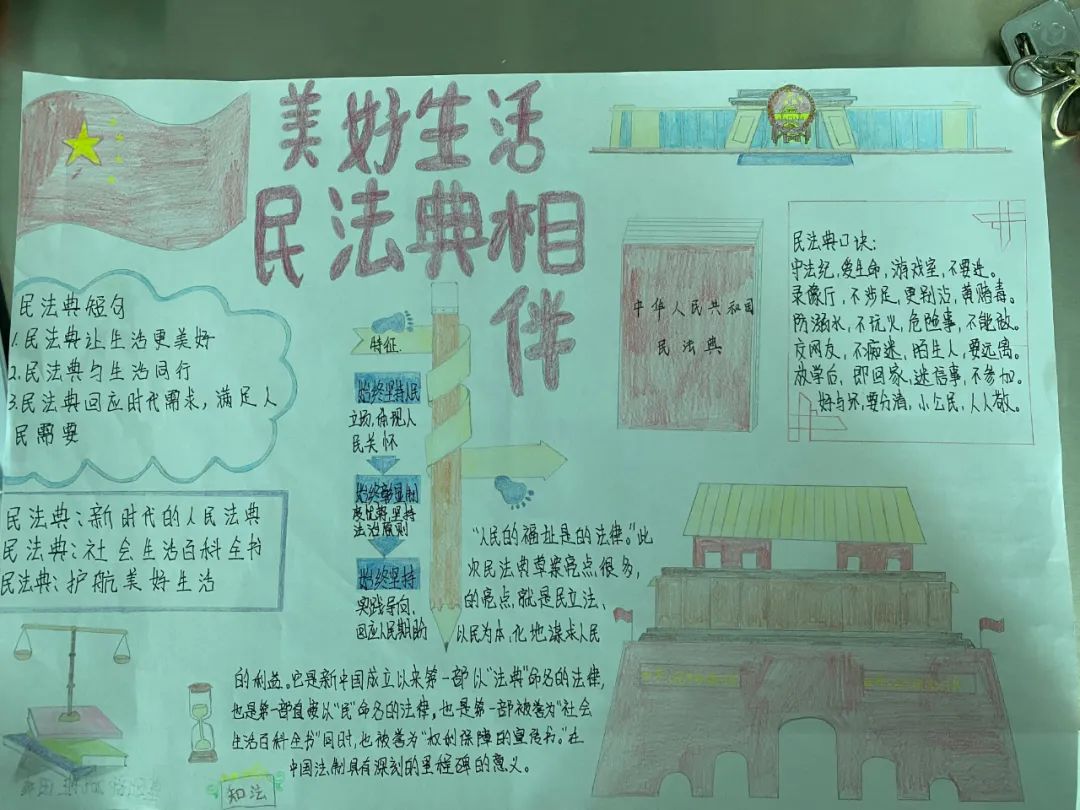 美好生活
民法典相
伴
民法典短句
1.民法典让生活更美好
2.民法典与生活同行
3.民法典回应时代需求，满足人
民需要
民法典：新时代的人民法典
民法典：社会生活百科全书
民法典：护航美好生活
特征.
始终坚持人民
立场，体现人
民关怀
始终彰显制
度优势，坚持
法治原则
始终坚持
实践导向，
回应人民期盼
中华人民共和国
民法典
民法典口诀：
守法纪，爱生命，游戏室，不要进。
录像厅，不涉足，更别沾，黄赌毒。
防溺水，不玩火，危险事，不能做。
交网友，不痴迷，陌生人，要远离。
放学后，即回家，迷信事，不参加。
好与坏，要分清，小公民，人人敬。
"人民的福祉是的法律。"此
次民法典草案亮点很多，
的亮点，就是民立法、
以民为本、化地谋求人民
的利益。它是新中国成立以来第一部以"法典"命名的法律，
也是第一部直接以"民"命名的法律，也是第一部被誉为"社会
生活百科全书"同时，也被誉为"权利保障的宣传书。"在
中国法制具有深刻的里程碑的意义。
知法